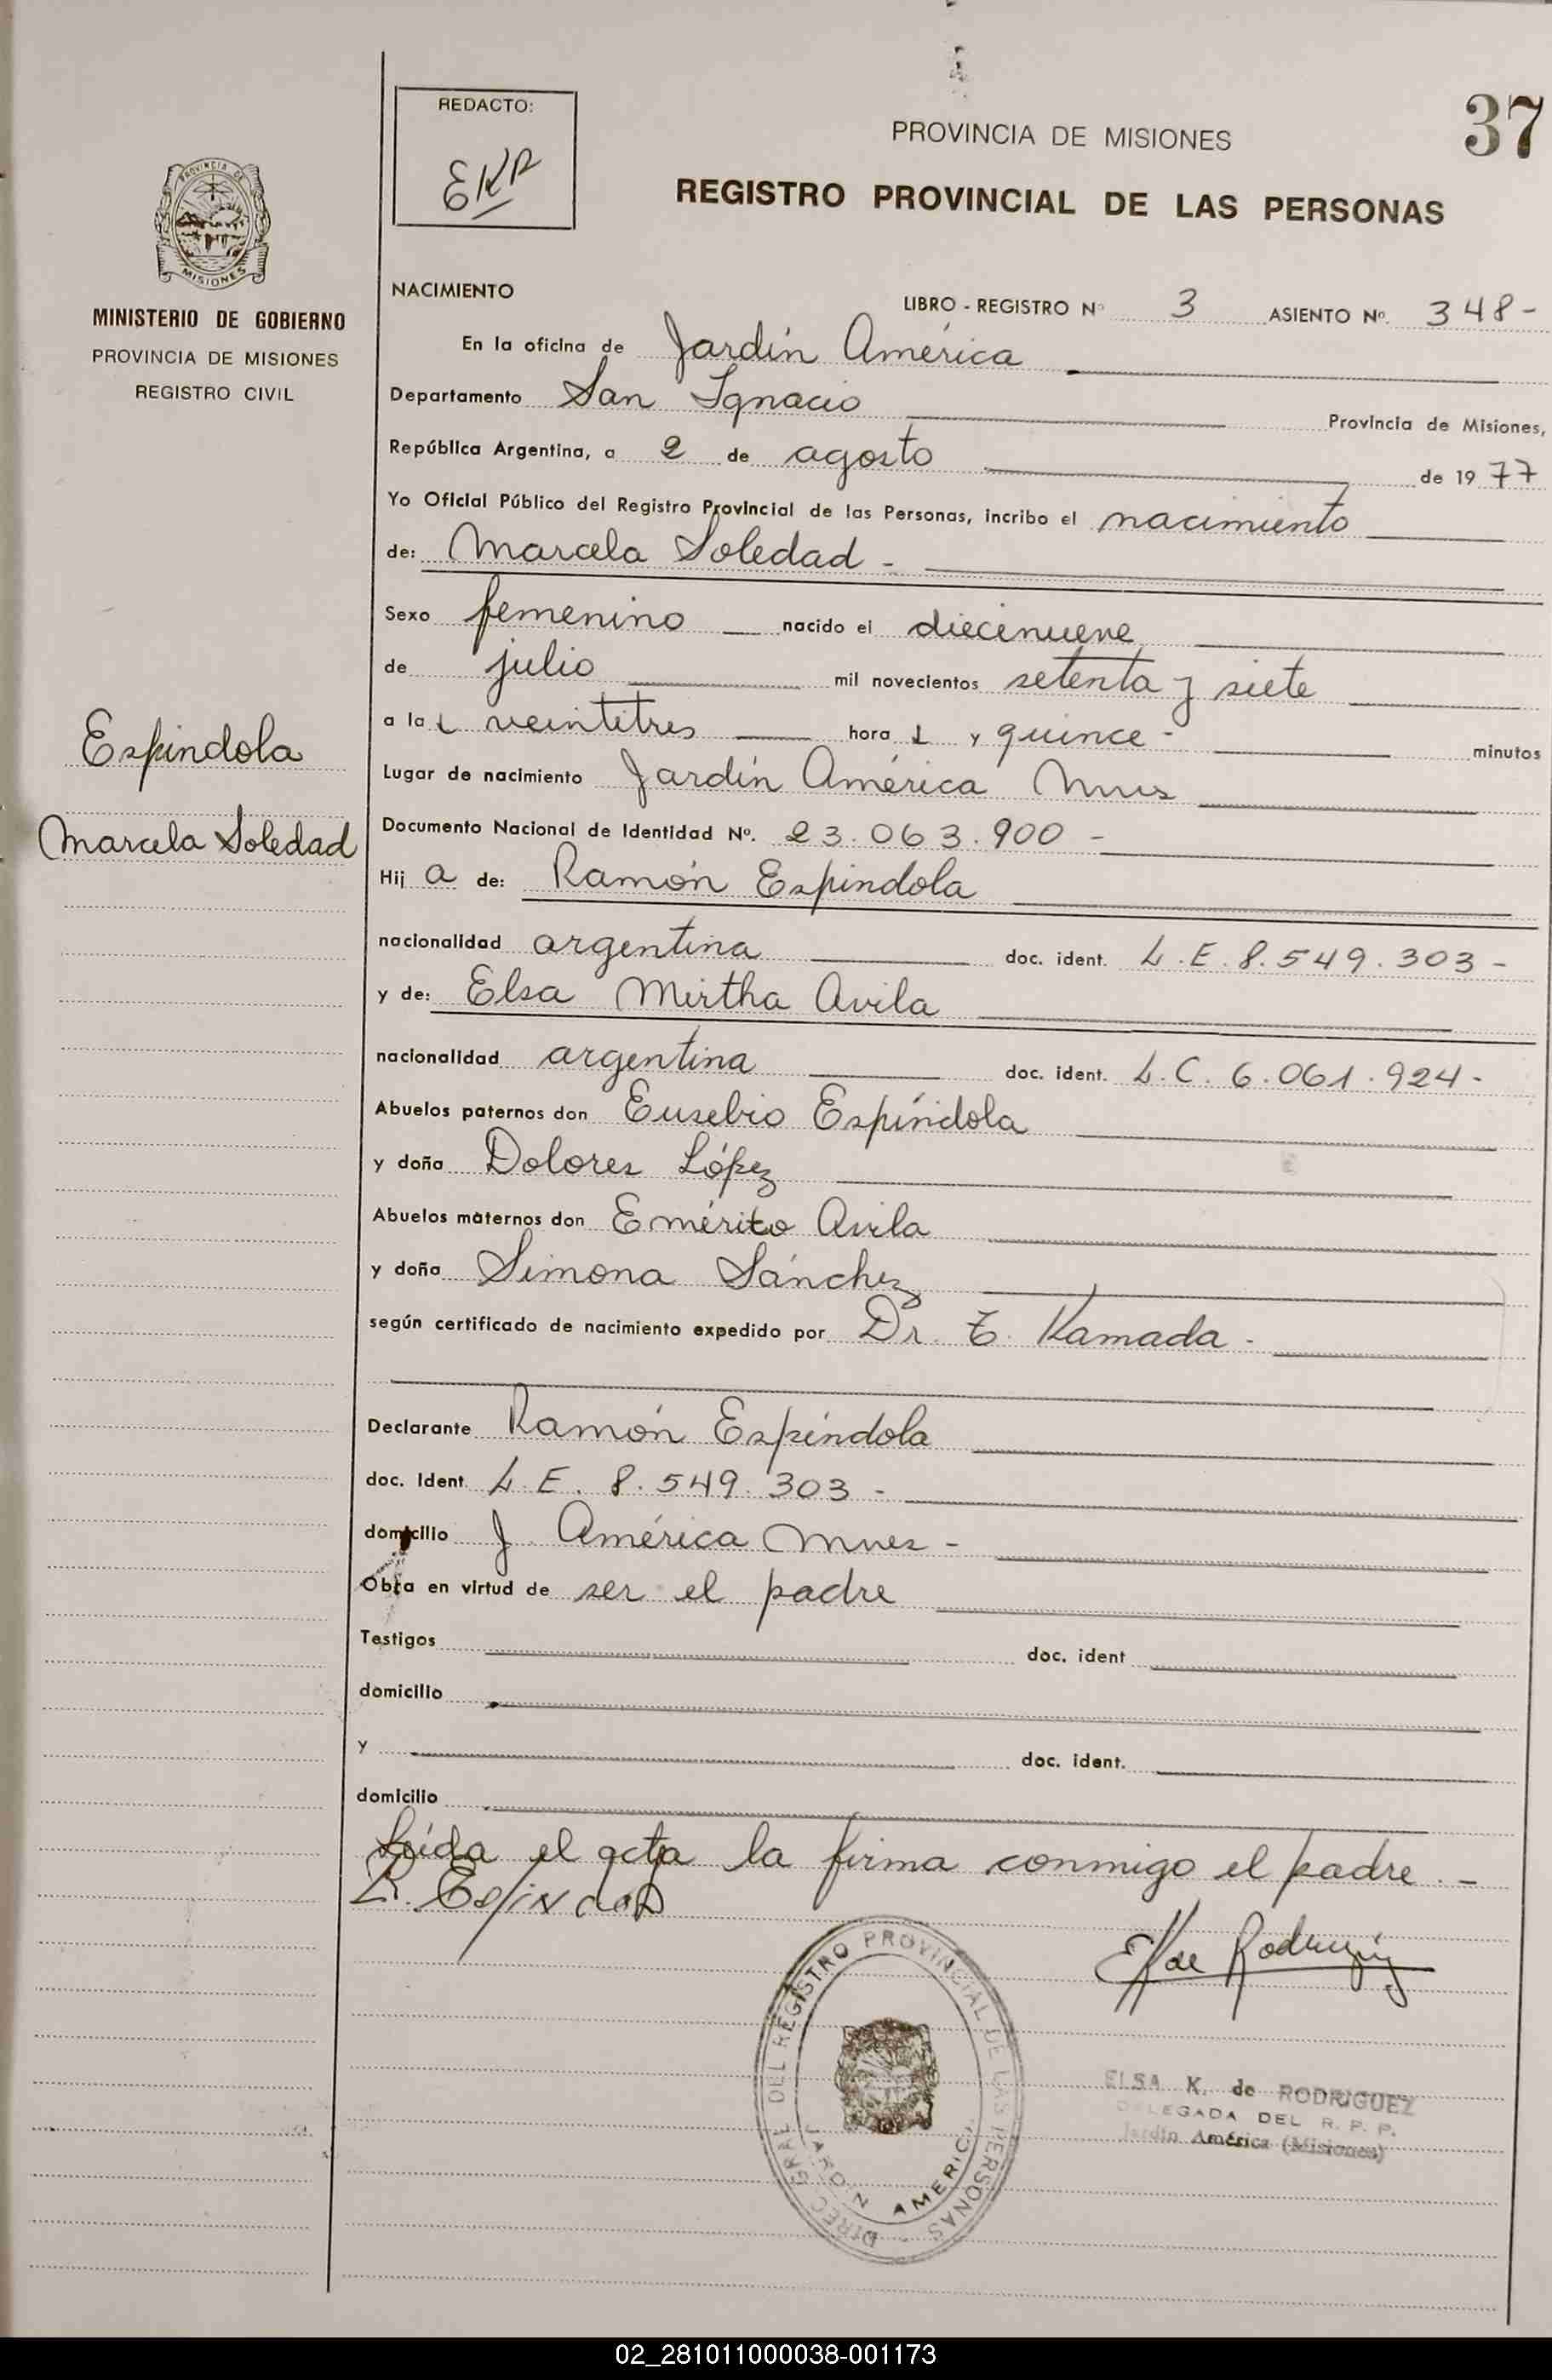 37
REDACTO:
EKR
PROVINCIA DE MISIONES
REGISTRO PROVINCIAL DE LAS PERSONAS
PROVINCIA DE
MISIONES
MINISTERIO DE GOBIERNO
PROVINCIA DE MISIONES
REGISTRO CIVIL
NACIMIENTO
LIBRO - REGISTRO Nº 3 ASIENTO Nº. 348-
En la oficina de Jardín América
Departamento San Ignacio Provincia de Misiones,
República Argentina, a 2 de agosto de 1977
Yo Oficial Público del Registro Provincial de las Personas, incribo el nacimiento
de: Marcela Soledad -
Sexo femenino nacido el diecinueve
de julio mil novecientos setenta y siete
a la s veintitres hora s y quince - minutos
Espindola
Marcela Soledad
Lugar de nacimiento Jardín América Mnes
Documento Nacional de Identidad Nº. 23.063.900 -
Hij a de: Ramón Espindola
nacionalidad argentina doc. ident. L.E. 8.549.303 -
y de: Elsa Mirtha Avila
nacionalidad argentina doc. ident. L.C. 6.061.924-
Abuelos paternos don Eusebio Espíndola
y doña Dolores López
Abuelos maternos don Emérito Avila
y doña Simona Sánchez
según certificado de nacimiento expedido por Dr. T. Kamada -
Declarante Ramón Espíndola
doc. Ident. L.E. 8.549.303 -
domicilio J. América Mnes -
Obra en virtud de ser el padre
Testigos doc. ident
domicilio
y doc. ident.
domicilio
Leída el acta la firma conmigo el padre. -
R. Espindola
EK de Rodriguez
DIREC. GRAL DEL REGISTRO PROVINCIAL DE LAS PERSONAS
JARDIN AMERICA
ELSA K. de RODRIGUEZ
DELEGADA DEL R. P. P.
Jardín América (Misiones)
02_281011000038-001173